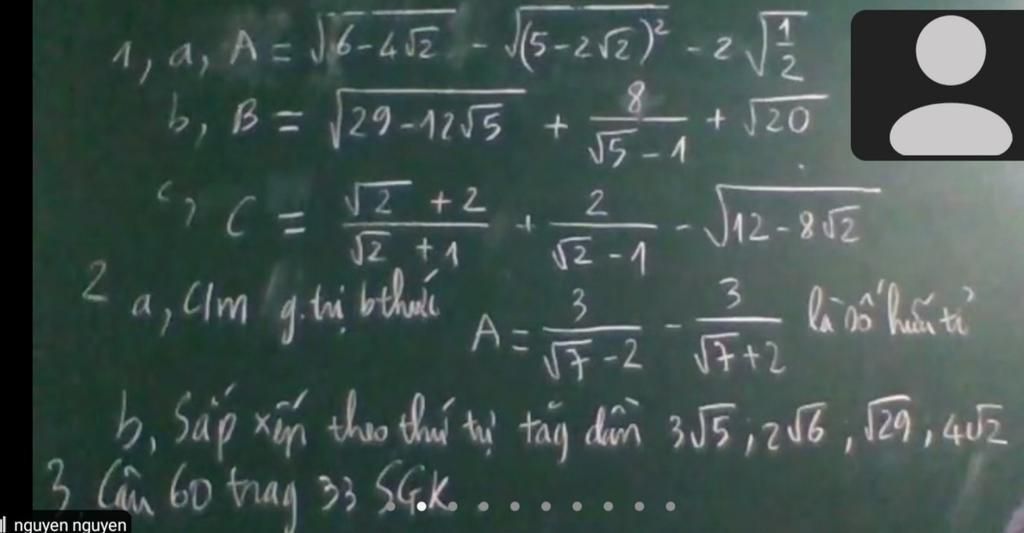 1, a, A = √(6-4√2) - √((5-2√2)²) - 2√(1/2)
b, B = √(29-12√5) + 8/(√5-1) + √20
c, C = (√2+2)/(√2+1) + 2/(√2-1) - √(12-8√2)
2 a, C/m g.trị bthức A = 3/(√7-2) - 3/(√7+2) là số hữu tỉ
b, Sắp xếp theo thứ tự tăg dần 3√5; 2√6, √29, 4√2
3 Câu 60 trag 33 SGK.
nguyen nguyen